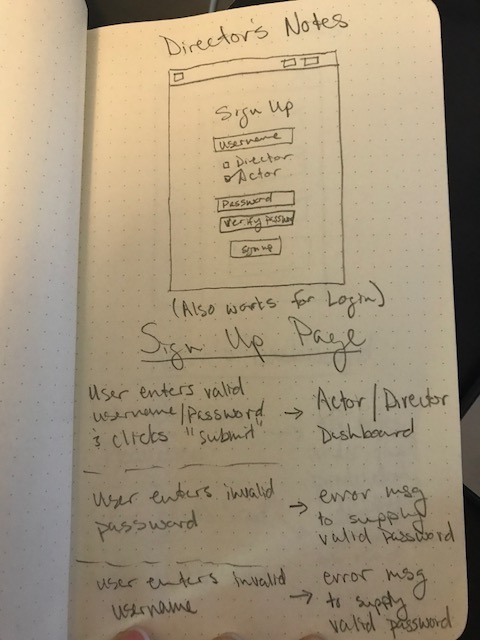 Director's Notes
Sign Up
Username
Director
Actor
Password
Verify Password
Sign up
(Also works for Login)
Sign Up Page
User enters valid
username/Password → Actor/Director
& clicks "Submit" Dashboard
User enters invalid → error msg
password to supply
valid Password
user enters invalid → error msg
username to supply
valid password